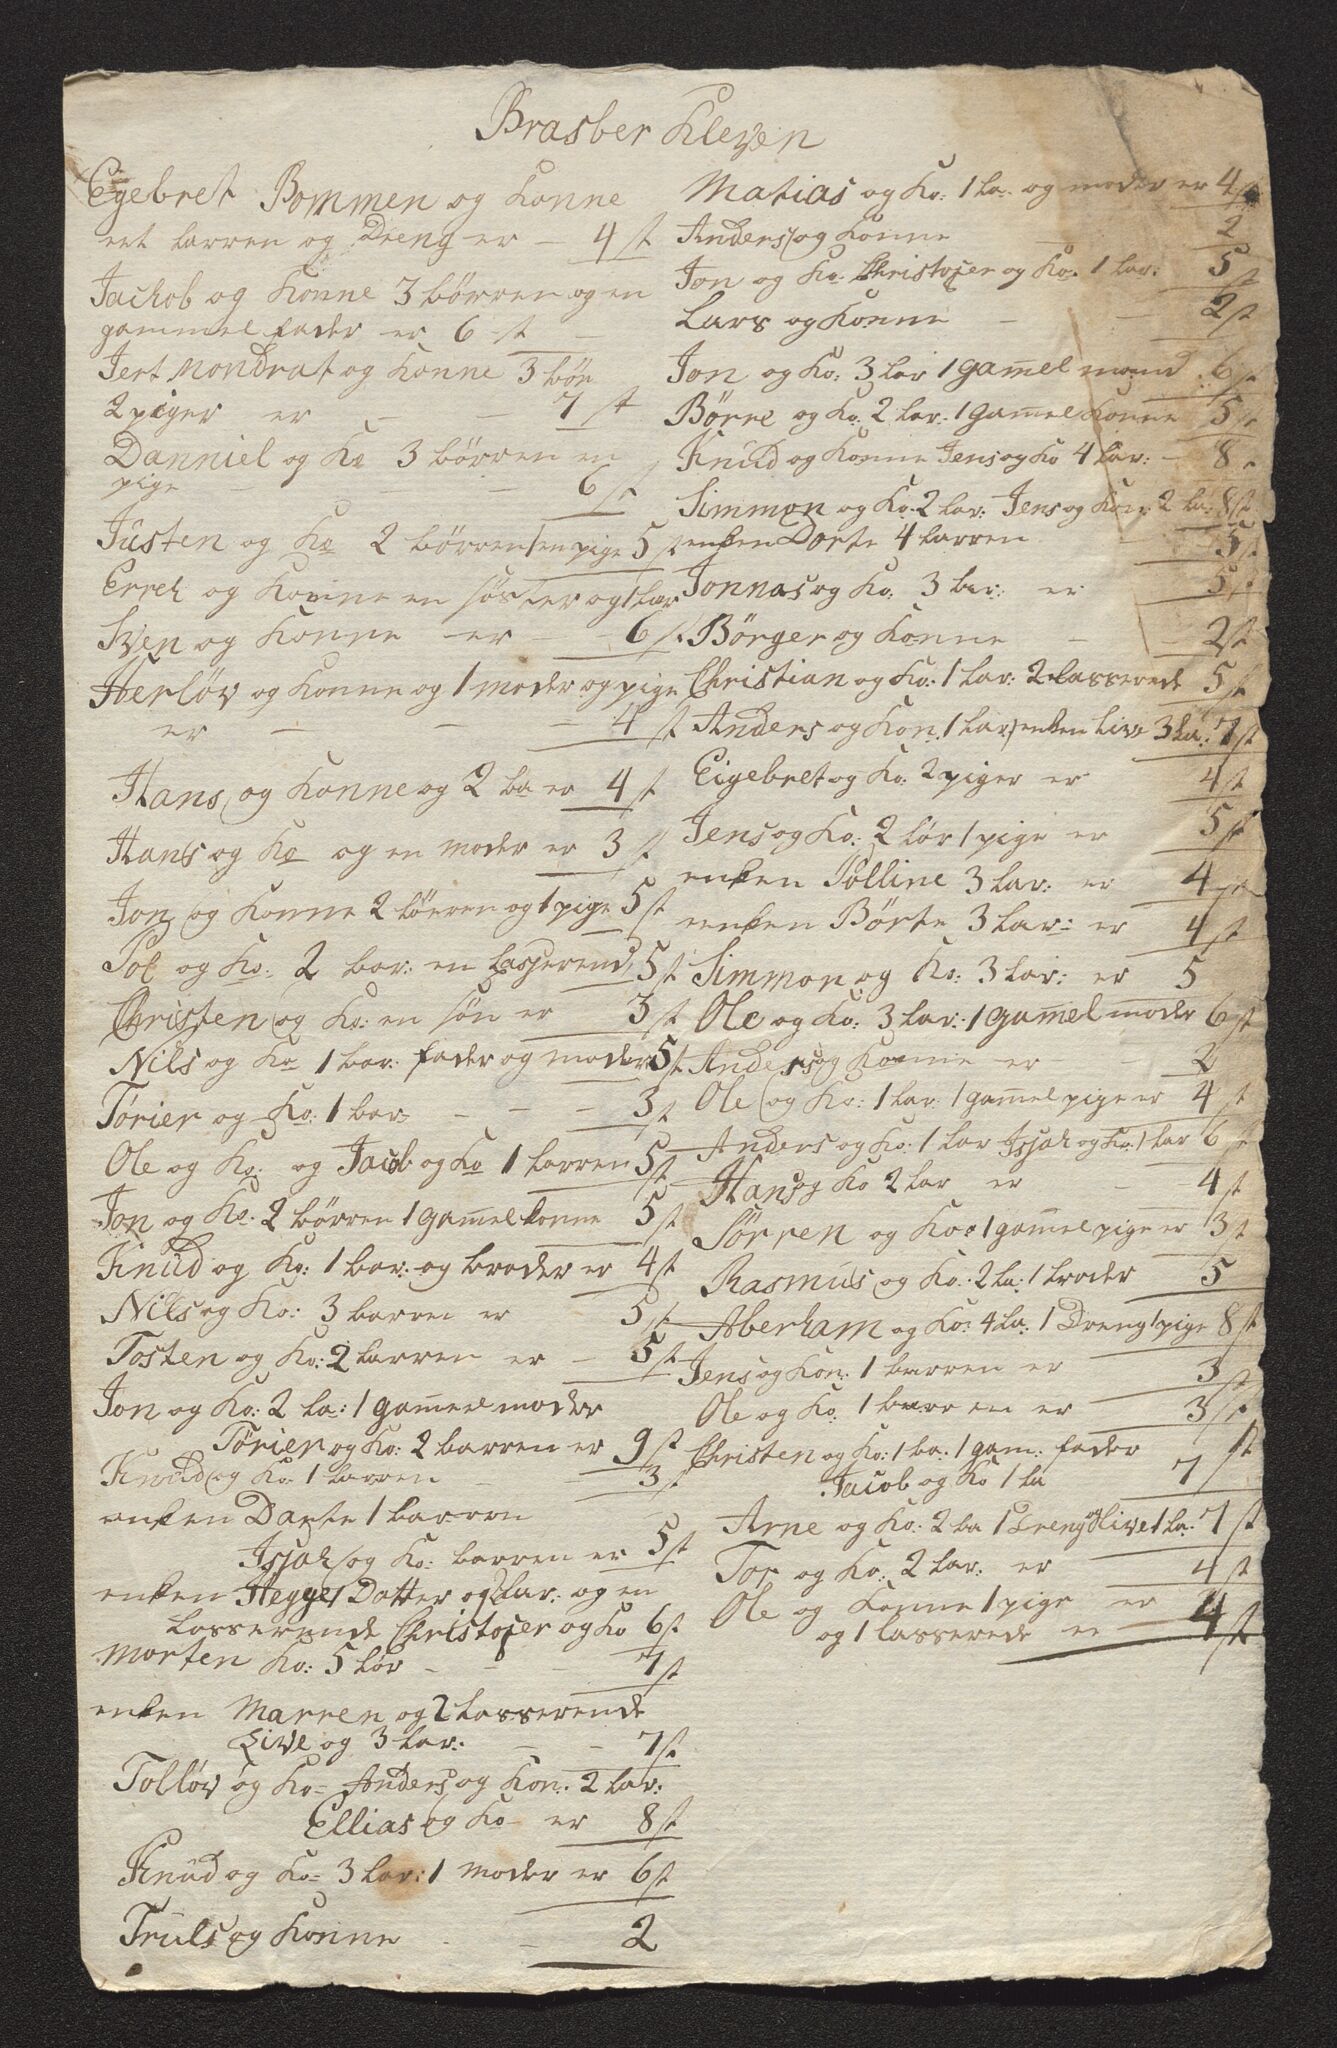 Brasber Kleven
Egebret Bommen og Konne
eet barren og Dreng er - 4 st
Jackob og Konne 3 börren og en
gammel fader er 6 st
Jert Mondrat og Konne 3 bör
2 piger er - - 7 st
Danniel og Ko 3 börren en
pige - - - 6 st
Justen og Ko 2 börren en pige 5 st
Errek og Konne en söster og 1 bar
Sven og Konne er - - 6 st
Herlöv og Konne og 1 moder og pige
er - - - 4 st
Hans og Konne og 2 ba er 4 st
Hans og Ko og en moder er 3 st
Jon og Konne 2 börren og 1 pige 5 st
Pol og Ko: 2 bar: en Lasjerend 5 st
Christen og Ko: en sön er 3 st
Nils og Ko 1 bar: fader og moder 5 st
Törier og Ko: 1 bar - - - 3 st
Ole og Ko: og Jacob og Ko 1 barren 5 st
Jon og Ko: 2 börren 1 gamel konne 5 st
Knud og Ko: 1 bar: og broder er 4 st
Nils og Ko: 3 barren er 5 st
Tosten og Ko: 2 barren er - 5 st
Jon og Ko: 2 ba: 1 gamel moder
Törier og Ko: 2 barren er 9 st
Knud og Ko: 1 barren 3 st
enken Darte 1 barren
Isjak og Ko: barren er 5 st
enken Hegge 1 Datter og 2 bar: og en
Losserende Christofer og Ko 6 st
Morten Ko: 5 bör - - - 7 st
enken Marren og 2 Losserende
Live og 3 bar: - - 7 st
Tollöv og Ko= Anders og Kon: 2 bar:
Ellias og Ko - er 8 st
Knud og Ko= 3 bar: 1 moder er 6 st
Truls og Konne - - 2
Matias og Ko: 1 ba: og moder er 4 st
Anders og Konne 2
Jon og Ko: Christofer og Ko: 1 bar: 5 st
Lars og Konne - - 2 st
Jon og Ko: 3 bar 1 gamel mand 6 st
Börre og Ko: 2 bar: 1 gamel Konne 5 st
Knud og Konne Jens og Ko 4 bar: - 8
Simmon og Ko: 2 bar: Jens og Kon: 2 ba: 8 st
enken Dorte 4 barren 5 st
Jonnas og Ko: 3 bar: er 5 st
Börger og Konne - - 2 st
Christian og Ko: 1 bar: 2 Lasserede 5 st
Anders og Kon: 1 bar enken Live 3 ba: 7 st
Eigebret og Ko: 2 piger er 4 st
Jens og Ko: 2 bör 1 pige er 5 st
enken Polline 3 bar: er 4 st
enken Börte 3 bar: er 4 st
Simmon og Ko: 3 bar: er 5
Ole og Ko: 3 bar: 1 gamel moder 6 st
Anders og Konne er 2
Ole og Ko: 1 bar: 1 gamel pige er 4 st
Anders og Ko: 1 bar Isjak og Ko: 1 bar 6 st
Hans og Ko 2 bar er - - 4 st
Sörren og Ko: 1 gamel pige er 3 st
Rasmus og Ko: 2 ba: 1 broder 5
Aberham og Ko: 4 ba: 1 Dreng 1 pige 8 st
Jens og Kon: 1 barren er 3 st
Ole og Ko: 1 barren er 3 st
Christen og Ko: 1 ba: 1 gam: fader
Jacob og Ko 1 ba 7 st
Arne og Ko: 2 ba 1 Dreng og Live 1 ba: 7 st
Tor og Ko: 2 bar: er 4 st
Ole og Konne 1 pige er
og 1 Lasserede er 4 st